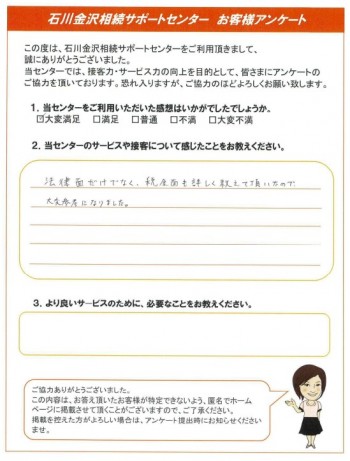 石川金沢相続サポートセンター お客様アンケート
この度は、石川金沢相続サポートセンターをご利用頂きまして、
誠にありがとうございました。
当センターでは、接客力・サービス力の向上を目的として、皆さまにアンケートの
ご協力を頂いております。恐れ入りますが、ご協力のほどよろしくお願い致します。
1. 当センターをご利用いただいた感想はいかがでしたでしょうか。
☑大変満足 □満足 □普通 □不満 □大変不満
2. 当センターのサービスや接客について感じたことをお教えください。
法律面だけでなく、税金面も詳しく教えて頂いたので
大変参考になりました。
3. より良いサービスのために、必要なことをお教えください。
ご協力ありがとうございました。
この内容は、お答え頂いたお客様が特定できないよう、匿名でホーム
ページに掲載させて頂くことがございますので、ご了承ください。
掲載を控えた方がよろしい場合は、アンケート提出時にお知らせください
ませ。